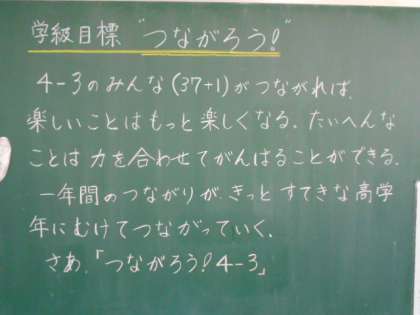 学級目標 "つながろう!"
4-3のみんな(37+1)がつながれば、
楽しいことはもっと楽しくなる。たいへんな
ことは力を合わせてがんばることができる。
一年間のつながりが、きっとすてきな高学
年にむけてつながっていく。
さあ、「つながろう!4-3」